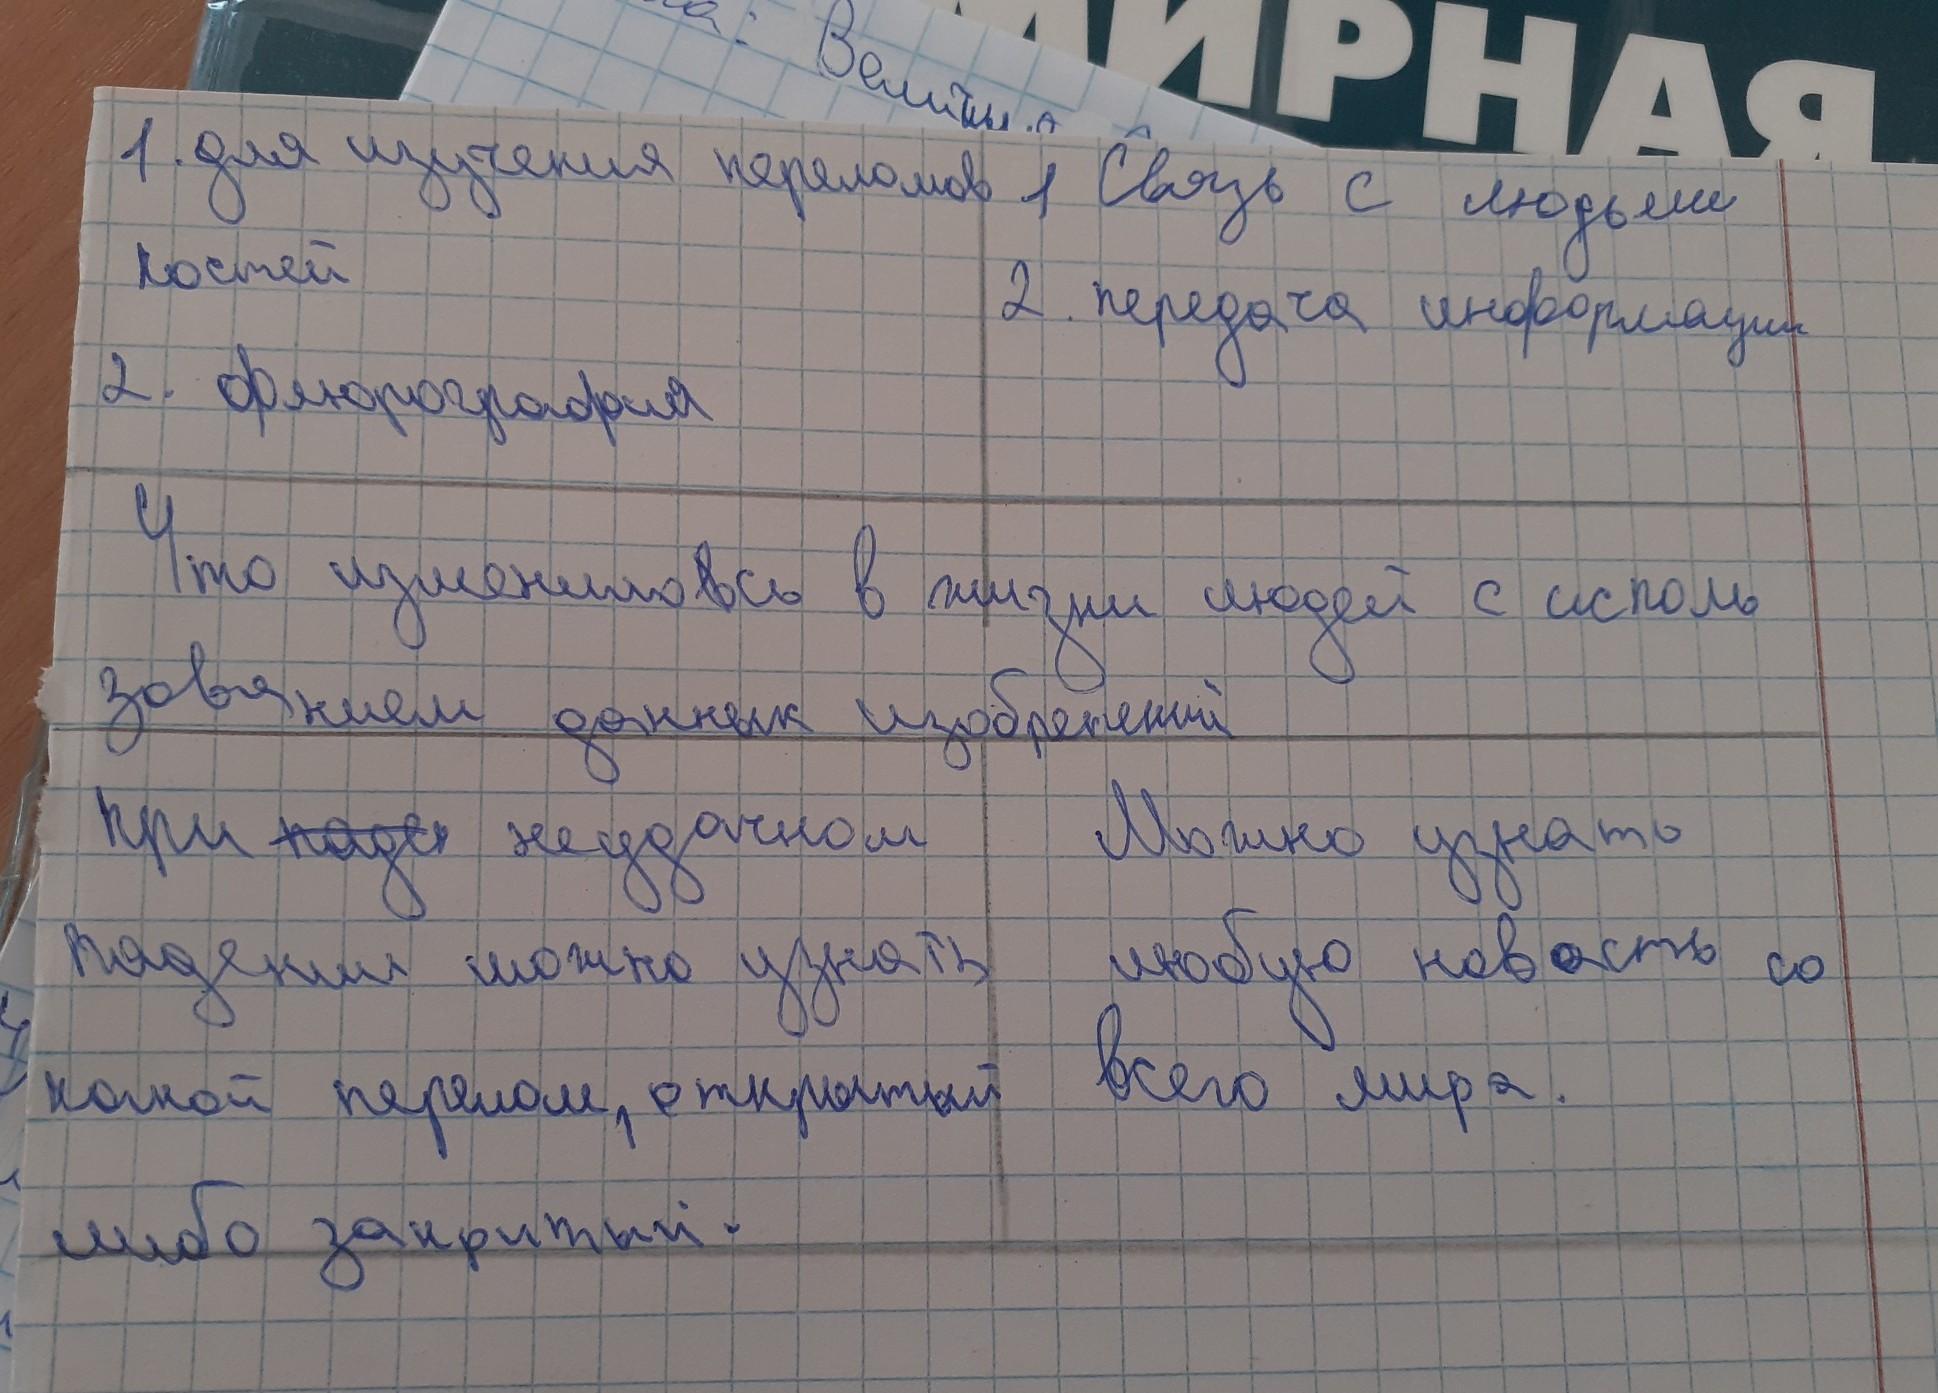 на: Велич
МИРНАЯ
1. для изучения переломов
костей
2. флюрография
1 Связь с людьми
2. передача информации
Что изменилось в жизни людей с исполь
зованием данных изобретений
При неудачном
падении можно узнать
какой перелом, открытый
либо закрытый.
Можно узнать
любую новость со
всего мира.